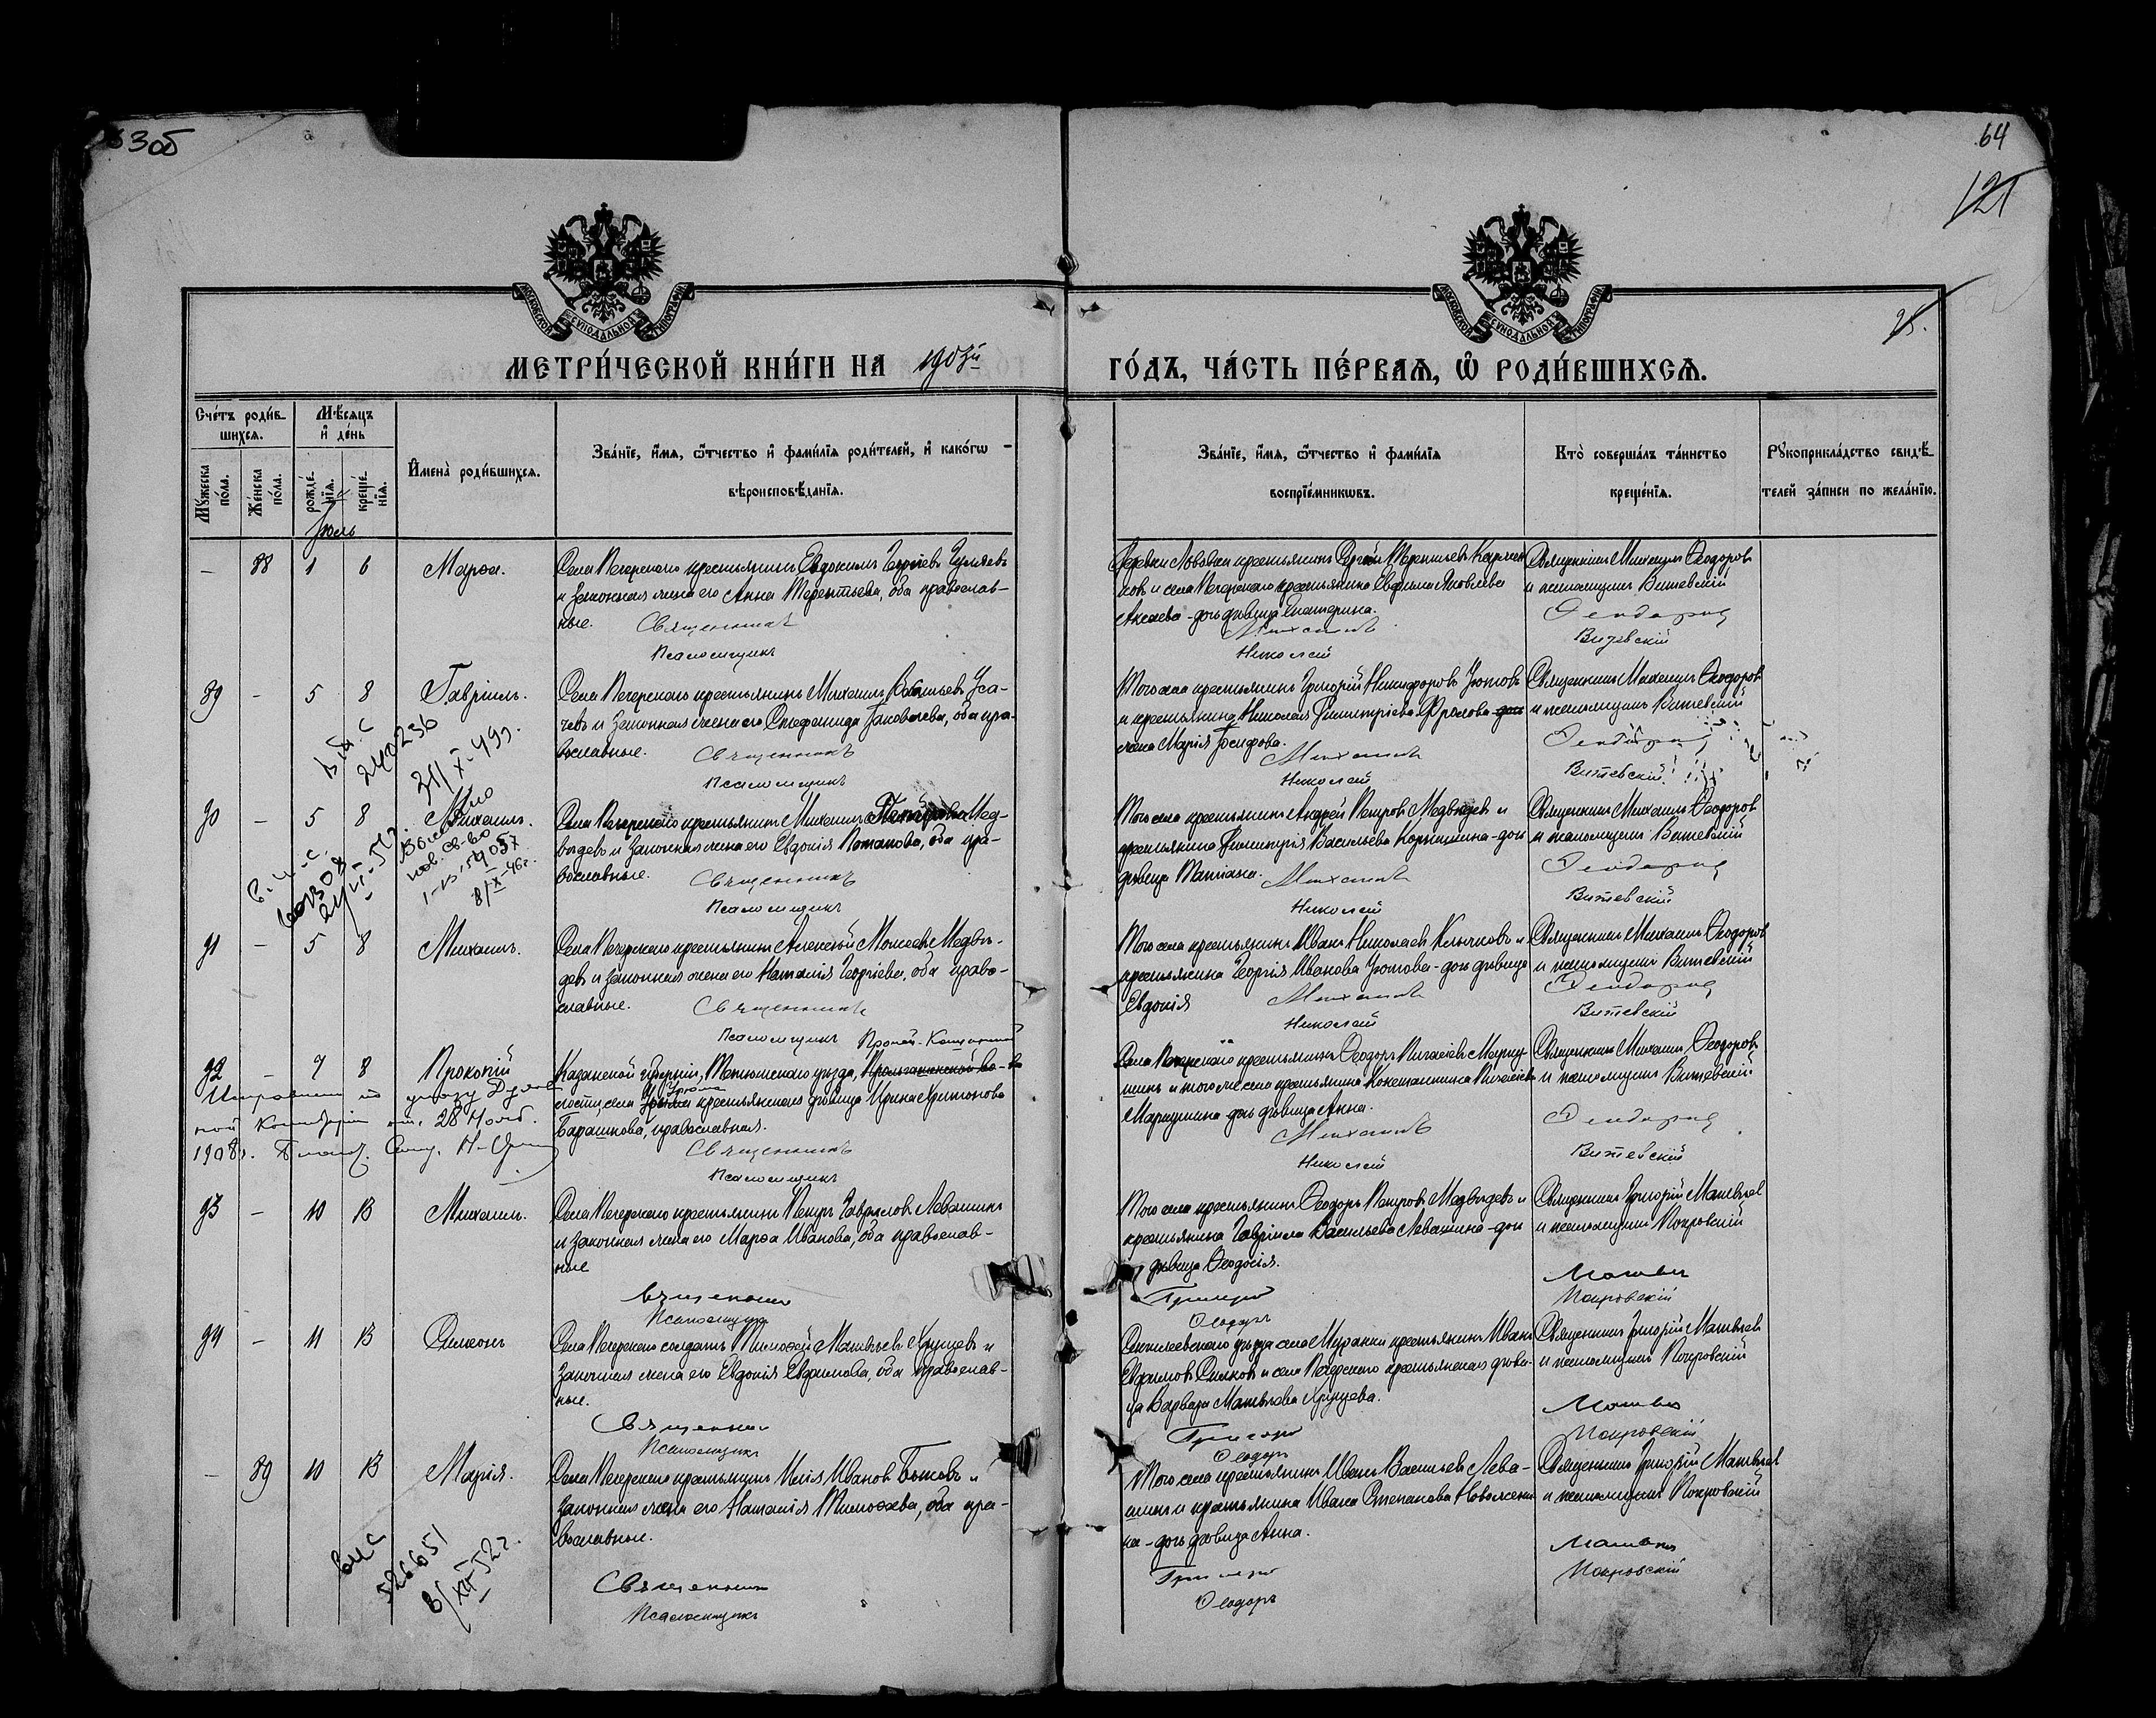 63об
64
121
МОСКОВСКОЙ СѴНОДАЛЬНОЙ ТИПОГРАФІИ
МОСКОВСКОЙ СѴНОДАЛЬНОЙ ТИПОГРАФІИ
МЕТРИ́ЧЕСКОЙ КНИ́ГИ НА 1903й
ГО́ДЪ, ЧА́СТЬ ПЕ́РВАЯ, Ѽ РОДИ́ВШИХСЯ.
Сче́тъ роди́в-
шихся.
Мꙋ́жеска по́ла.
Же́нска по́ла.
Мѣ́сяцъ и҆ де́нь
рожде́-нїя.
креще́-нїя.
И҆мена̀ роди́вшихся.
Зва́нїе, и҆́мя, ѻ҆́тчество и҆ фами́лїя роди́телей, и҆ како́гѡ
вѣроисповѣ́данїя.
Зва́нїе, и҆́мя, ѻ҆́тчество и҆ фами́лїя
воспрїе́мникѡвъ.
Кто̀ соверша́лъ та́инство
креще́нїя.
Рꙋкоприкла́дство свидѣ́-
телей за́писи по жела́нїю.
Іюль
— 88 1 6 Марѳа.
Села Печерскаго крестьянинъ Евдокимъ Георгіевъ
и законная жена его Анна Терентьева, оба православ-
ные. Священникъ
Псаломщикъ
крестьянинъ Сергѣй Терентьевъ
и села Печерскаго крестьянина Яковлева
дочь дѣвица Екатерина.
Михаилъ
Николай
Священникъ Михаилъ Ѳеодоровъ
и псаломщикъ Витевскій
Ѳеодоровъ
Витевскій
89 - 5 8 Гавріилъ.
Села Печерскаго крестьянинъ Михаилъ Васильевъ Уса-
чевъ и законная жена его Стефанида Іаковлева, оба пра-
вославные. Священникъ
Псаломщикъ
Того села крестьянинъ Григорій Никифоровъ Зютовъ
и крестьянина Николая Димитріева Фролова
жена Марія Іосифова. Михаилъ
Николай
Священникъ Михаилъ Ѳеодоровъ
и псаломщикъ Витевскій
Ѳеодоровъ
Витевскій
90 - 5 8 Михаилъ.
Села Печерскаго крестьянинъ Михаилъ Мед-
вѣдевъ и законная жена его Евдокія Потапова, оба пра-
вославные. Священникъ
Псаломщикъ
Того села крестьянинъ Андрей Петровъ Медвѣдевъ и
крестьянина Димитрія Васильева дочь
дѣвица Татіана. Михаилъ
Николай
Священникъ Михаилъ Ѳеодоровъ
и псаломщикъ Витевскій
Ѳеодоровъ
Витевскій
91 - 5 8 Михаилъ.
Села Печерскаго крестьянинъ Алексѣй Моисеевъ Медвѣ-
девъ и законная жена его Наталія Георгіева, оба право-
славные. Священникъ
Псаломщикъ
Того села крестьянинъ Иванъ Николаевъ Клычковъ и
крестьянина Георгія Иванова Зютова - дочь дѣвица
Евдокія Михаилъ
Николай
Священникъ Михаилъ Ѳеодоровъ
и псаломщикъ Витевскій
Ѳеодоровъ
Витевскій
92 - 7 8 Прокопій
Казанской губерніи, Тетюшскаго уѣзда, во-
лости, села крестьянская дѣвица Ирина Харитонова
Барашкова, православная.
Священникъ
Псаломщикъ
28 Нояб.
1908г.
Села Печерскаго крестьянинъ Ѳеодоръ
и того же села крестьянина Константина
дочь дѣвица Анна.
Михаилъ
Николай
Священникъ Михаилъ Ѳеодоровъ
и псаломщикъ Витевскій
Ѳеодоровъ
Витевскій
93 - 10 13 Михаилъ.
Села Печерскаго крестьянинъ Петръ Гавриловъ Левашинъ
и законная жена его Марѳа Иванова, оба православ-
ные
Священникъ
Псаломщикъ
Того села крестьянинъ Ѳеодоръ Петровъ Медвѣдевъ и
крестьянина Гавріила Васильева Левашина - дочь
дѣвица Ѳеодосія.
Григорій
Ѳеодоръ
Священникъ Григорій Матвѣевъ
и псаломщикъ Покровскій
Матвѣевъ
Покровскій
94 - 11 13 Симеонъ
Села Печерскаго солдатъ Тимоѳей Матвѣевъ Хрущевъ и
законная жена его Евдокія Евфимова, оба православ-
ные.
Священникъ
Псаломщикъ
Сенгилеевскаго уѣзда села Муранки крестьянинъ Иванъ
и села Печерскаго крестьянская дѣви-
ца Варвара Матвѣева Хрущева.
Григорій
Ѳеодоръ
Священникъ Григорій Матвѣевъ
и псаломщикъ Покровскій
Матвѣевъ
Покровскій
- 89 10 13 Марія.
Села Печерскаго крестьянинъ Илія Ивановъ Ботовъ и
законная жена его Наталія Тимоѳеева, оба пра-
вославные.
Священникъ
Псаломщикъ
526651
Того села крестьянинъ Иванъ Васильевъ Лева-
шинъ и крестьянина Ивана Степанова
на - дочь дѣвица Анна.
Григорій
Ѳеодоръ
Священникъ Григорій Матвѣевъ
и псаломщикъ Покровскій
Матвѣевъ
Покровскій